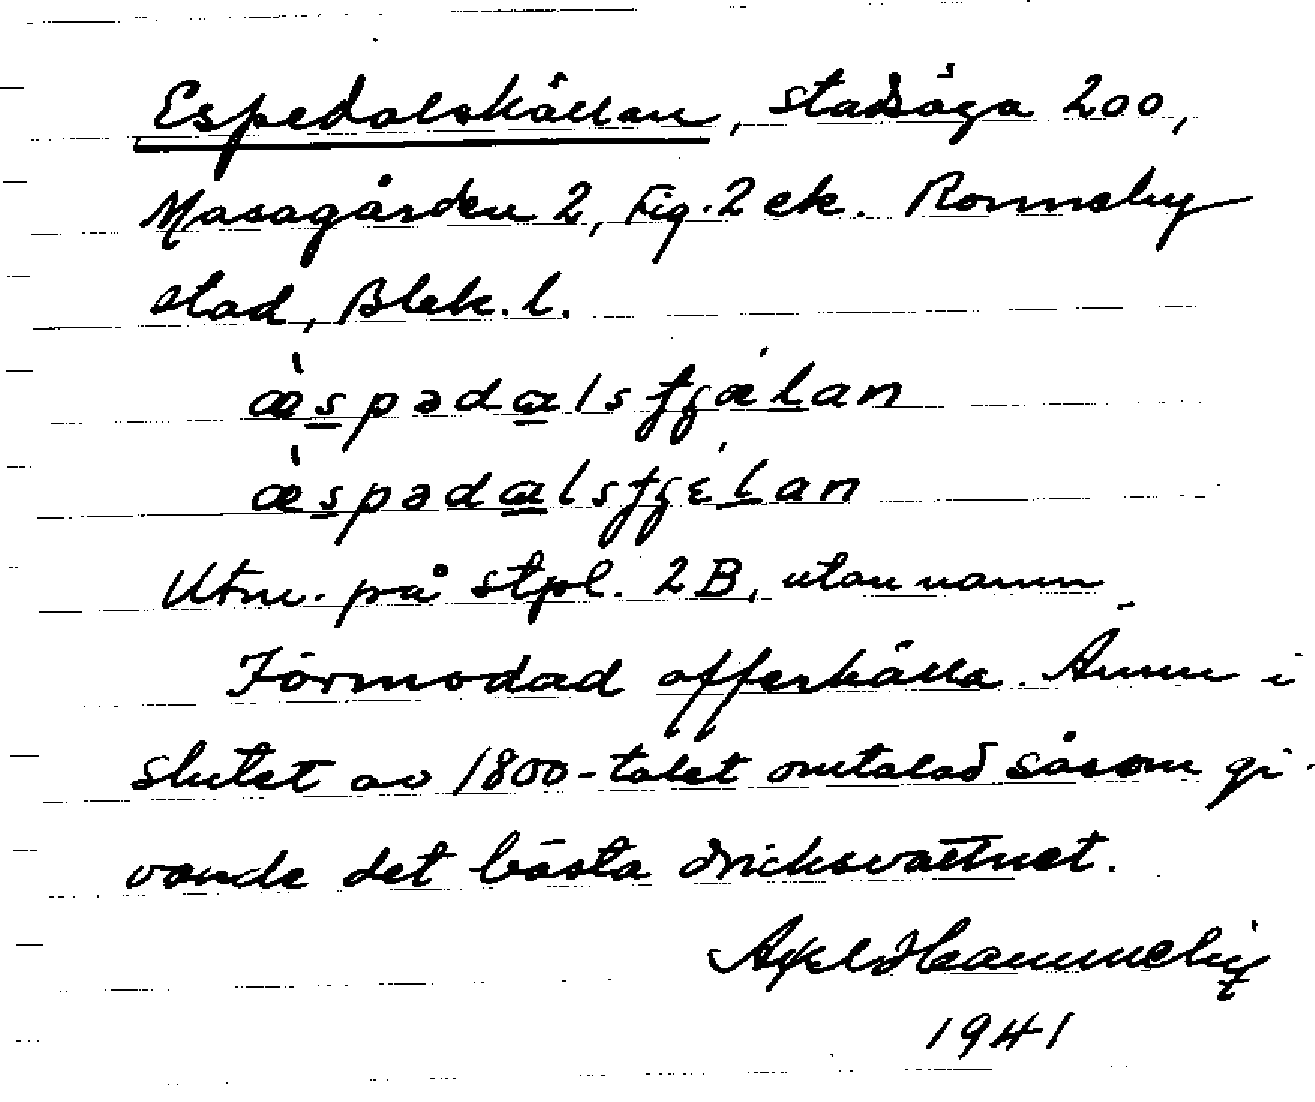 Espedalskällan, stadsäga 200,
Masagården 2, Fig. 2 ek. Ronneby
stad, Blek. l.
æ̀spədalsfjǽlan
æ̀spədalsfjɛ́lan
Utm. på stpl. 2B, utan namn
Förmodad offerkälla. Ännu i
slutet av 1800-talet omtalad såsom gi-
vande det bästa dricksvattnet.
Axel Hammeby
1941